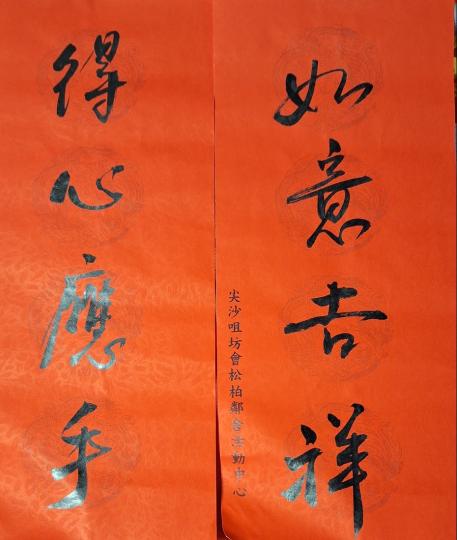 如意吉祥
尖沙咀坊會松柏鄰舍活動中心
得心應手